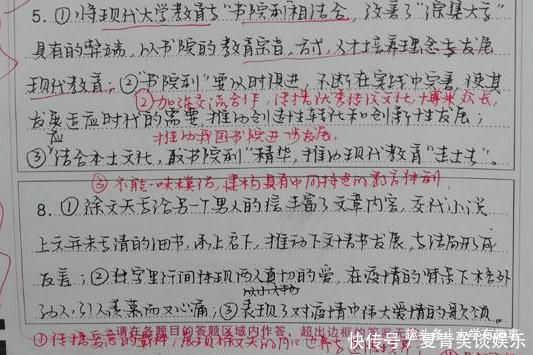 5. ①将现代大学教育与“书院制相结合，改善了“深集大学”
具有的弊端，从书院的教育宗旨，方式，人才培养理念去发展
现代教育；②“书院制”要以时俱进，不断在实践中完善，使其
②加强交流合作，传承优秀传统文化，博采众长，
发展适应时代的需要，推动创造性转化和创新性发展；
应
推动我国书院进一步发展.
③“结合本土文化，取书院制”精华，推动现代教育“走出去”。
③不能一味模仿，建构具有中国特色的教育体制.
8. ①徐文天写给另一个男人的信丰富了文章内容，交代小说
上文并未写清的细节，承上启下，推动下文情节发展，与结局形成
反差；②字里行间体现两人真切的爱，在疫情的背景下格外
动人，引人羡慕而又心痛；③表现了对疫情中伟大爱情的歌颂。
请在各题目的答题区域内作答，超出边框的答案无效
快传号/夏青笑谈娱乐